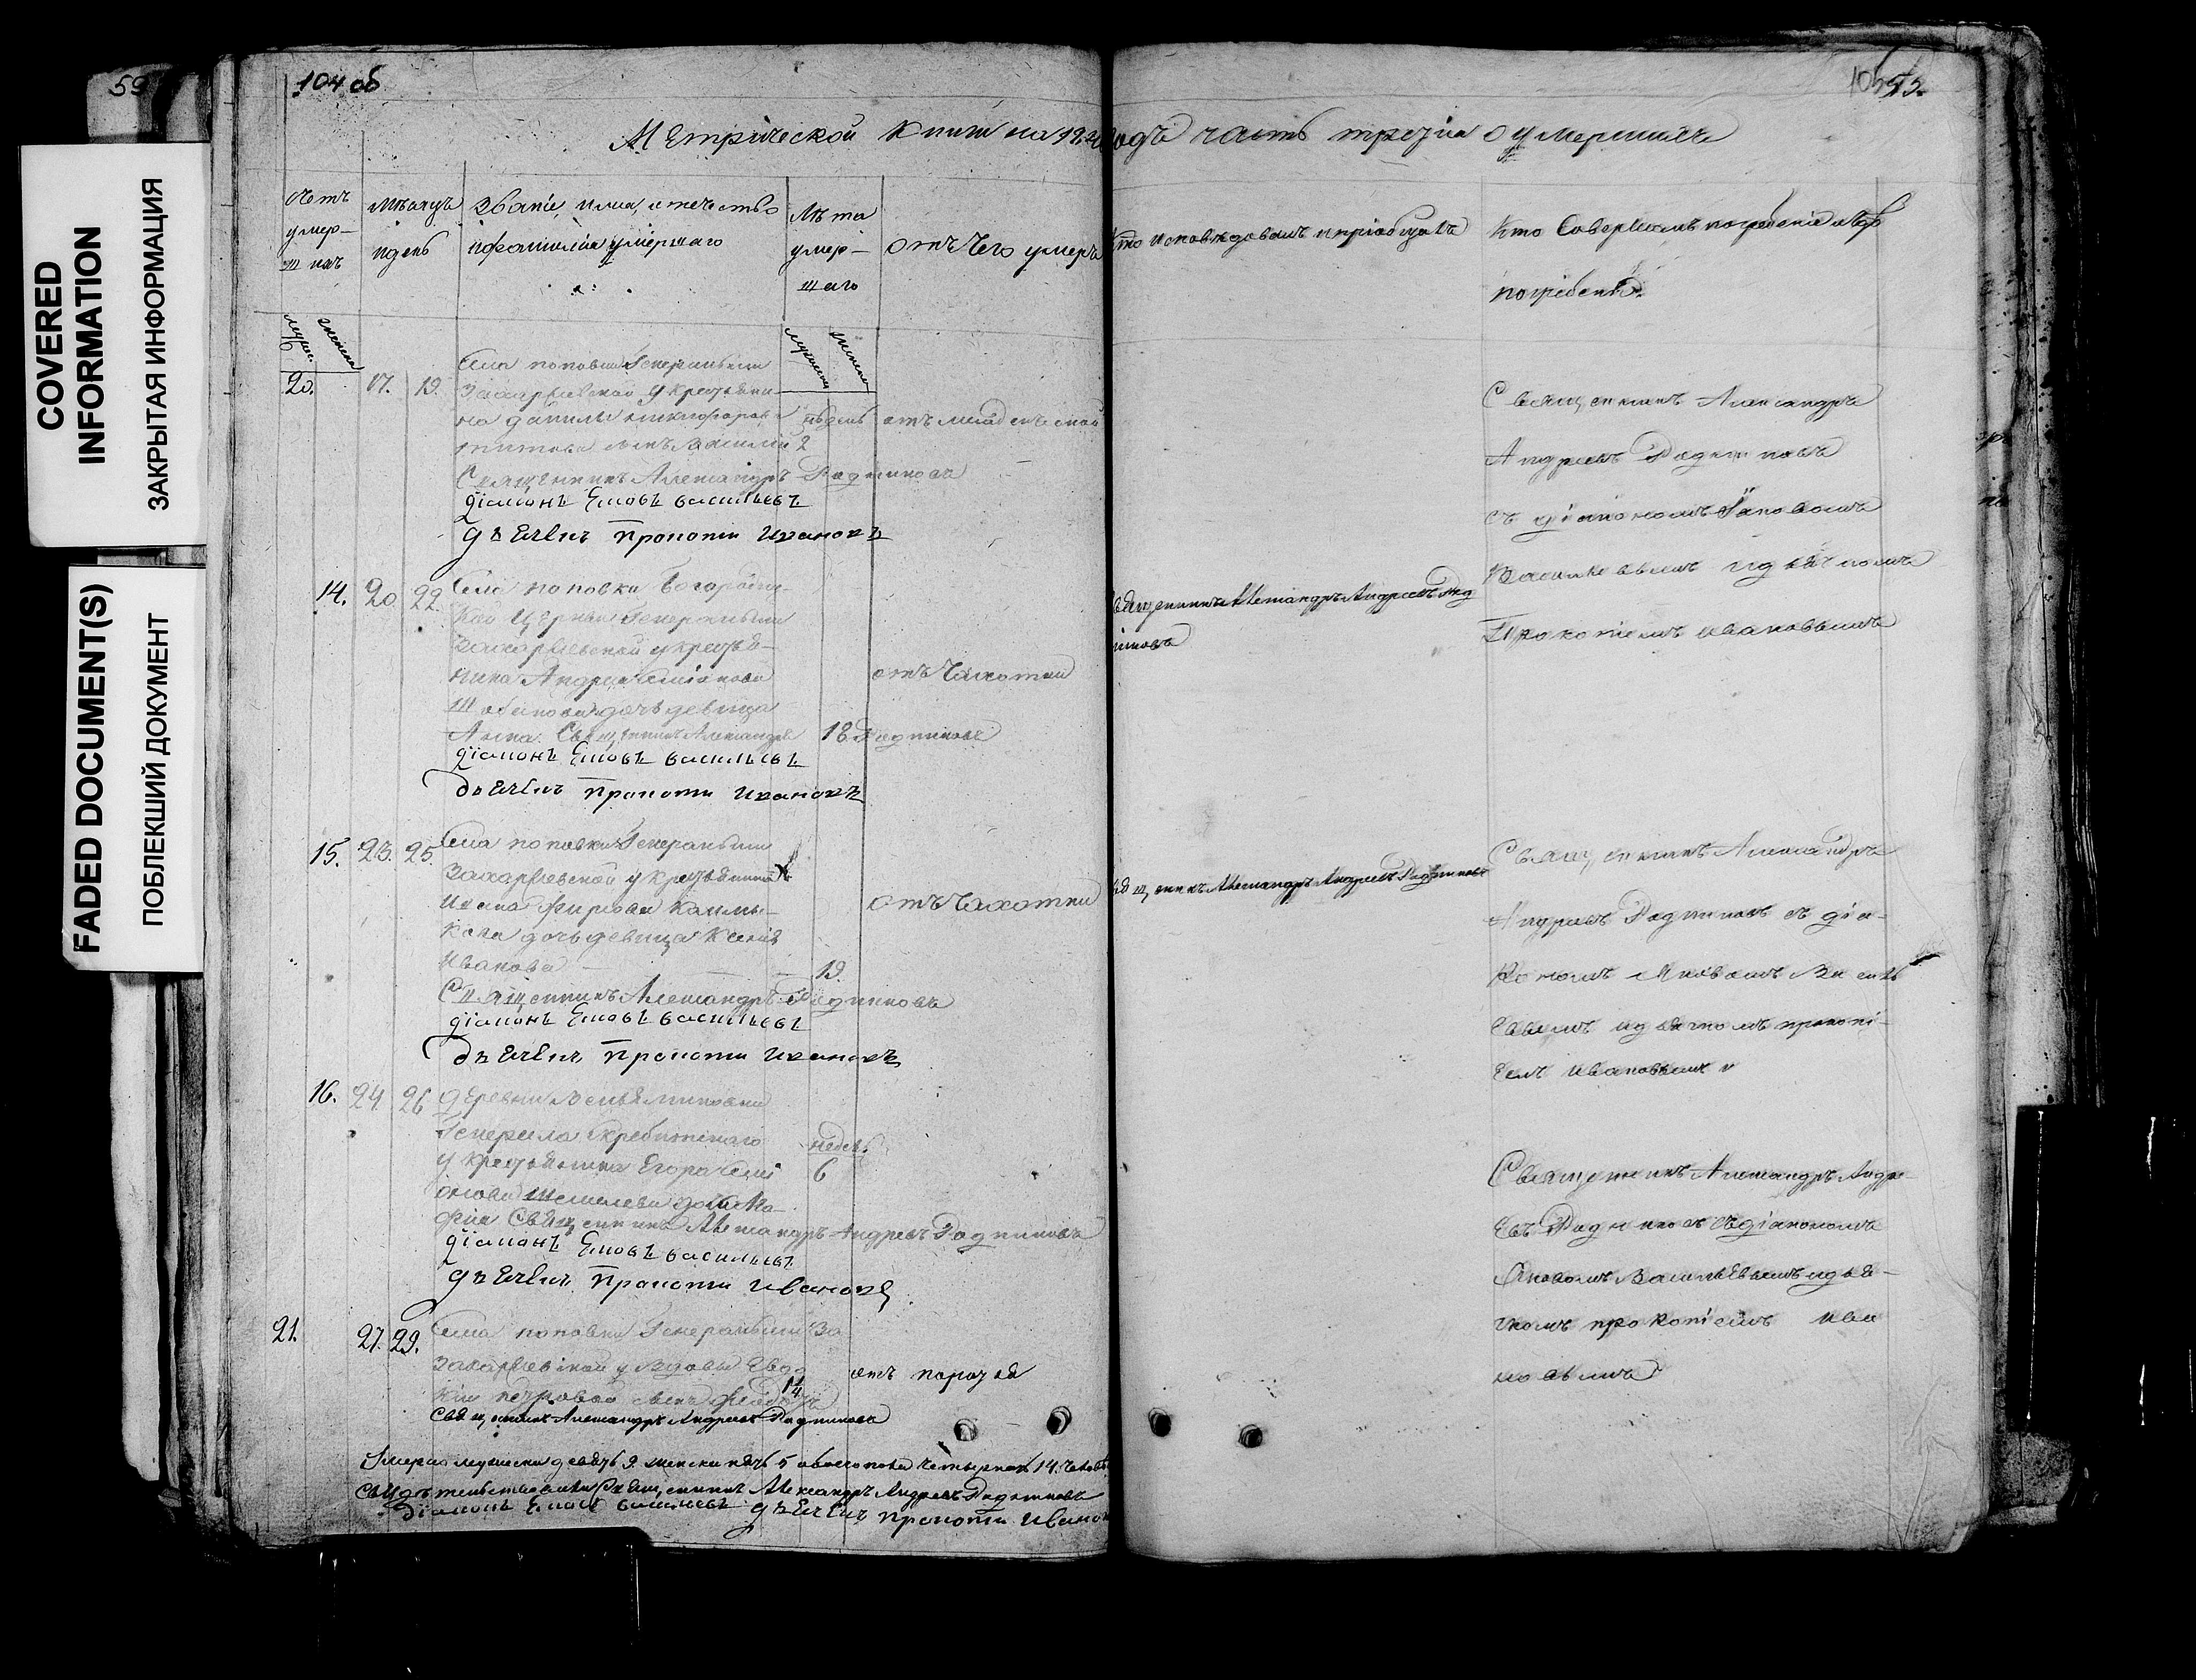 59
104 об
105
93.
COVERED INFORMATION
ЗАКРЫТАЯ ИНФОРМАЦИЯ
FADED DOCUMENT(S)
ПОБЛЕКШИЙ ДОКУМЕНТ
Метрической книги на годъ часть третiя о умершихъ
счетъ умер-шихъ
мѣсяцъ и день
званiе, имя, отечество и фамилiя умершаго
лѣта умер-шаго
отъ чего умеръ
кто исповѣдовалъ и прiобщалъ
кто совершалъ погребенiе и гдѣ
погребенъ.
мужеск. женска
мужеска женска
20. 17. 19.
села поповки Генеральши
Захарьевской у крестьяни-
на данилы никифорова
титова сынъ Василiй 2
отъ младенческой
Священникъ Александръ Радниковъ
дiаконъ Ековъ васильевъ
дьячекъ Прокопи Ивановъ
Священникъ Александръ
Андреевъ Радниковъ
съ дiакономъ Яковомъ
Васильевымъ и дьячкомъ
Прокопiемъ ивановымъ
14. 20 22.
села поповки
кой церкви Генеральши
Захарьевской у крестья-
нина Андрея Семiонова
дочь девица
Анна Священникъ Александръ 18. Радниковъ
отъ Чахотки
дiаконъ Ековъ васильевъ
дьячекъ Прокопи Ивановъ
Священникъ Александръ Андреевъ Рад
никовъ
15. 23. 25.
села поповки Генеральши
Захарьевской у крестьянина
Ивана Фирсова Калмы-
кова дочь девица Ксенiя
Иванова 19.
отъ Чахотки
Священникъ Александръ Радниковъ
дiаконъ Ековъ васильевъ
дьячекъ Прокопи Ивановъ
Священникъ Александръ Андреевъ Радниковъ
Священникъ Александръ
Андреевъ Радниковъ съ дiа-
кономъ Яковомъ Василь
евымъ и дьячкомъ прокопi-
емъ ивановымъ
16. 24 26
деревни
Генерала
у крестьянина Егора Семi
онова Шемелева дочь Ма-
рiя Священникъ Александръ Андреевъ Радниковъ
недель
6
дiаконъ Ековъ васильевъ
дьячекъ Прокопи Ивановъ
Священникъ Александръ Андре-
евъ Радниковъ съ дiакономъ
Яковомъ Васильевымъ и дья-
чкомъ прокопiемъ ива
новымъ
21. 27. 29.
села поповки Генеральши За
Захарьевской у вдовы Евдо
кiи петровой сынъ
14
Священникъ Александръ Андреевъ Радниковъ
Умерло мужеска девять 9. женска пять 5 обоего пола четырнать 14. челов
свидетельствовали Священникъ Александръ Андреевъ Радниковъ
дiаконъ Ековъ васильевъ дьячекъ Прокопи Иванов